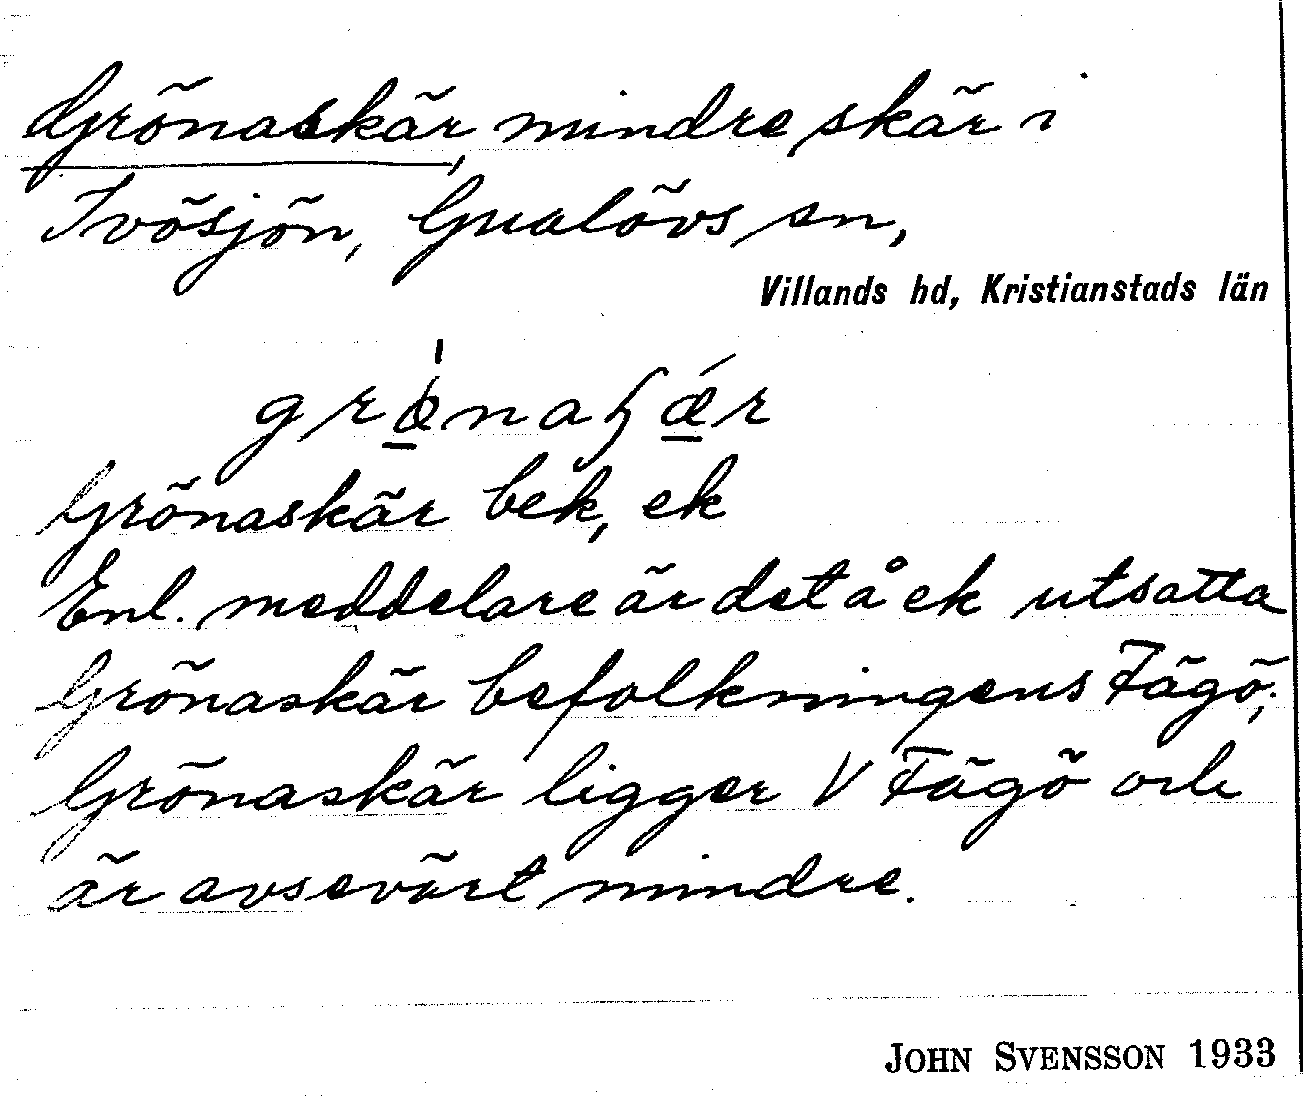 Grönaskär, mindre skär i
Ivösjön, Gualövs sn,
Villands hd, Kristianstads län
Grönaskär bek, ek
Enl. meddelare är det å ek utsatta
Grönaskär befolkningens Fägö;
Grönaskär ligger V Fägö och
är avsevärt mindre.
JOHN SVENSSON 1933